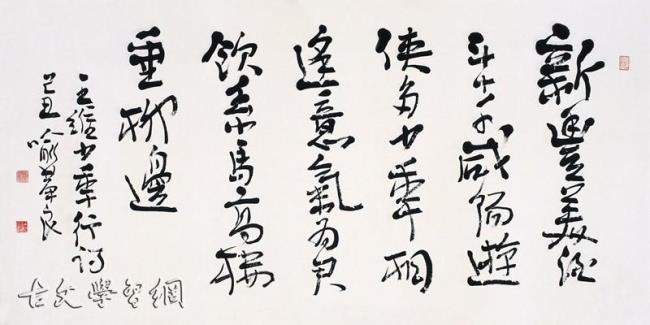 新豐美酒
斗十千咸陽遊
俠多少年相
逢意氣為君
飲系馬高樓
垂柳邊
王維少年行詩
己丑喻革良
古文學習網